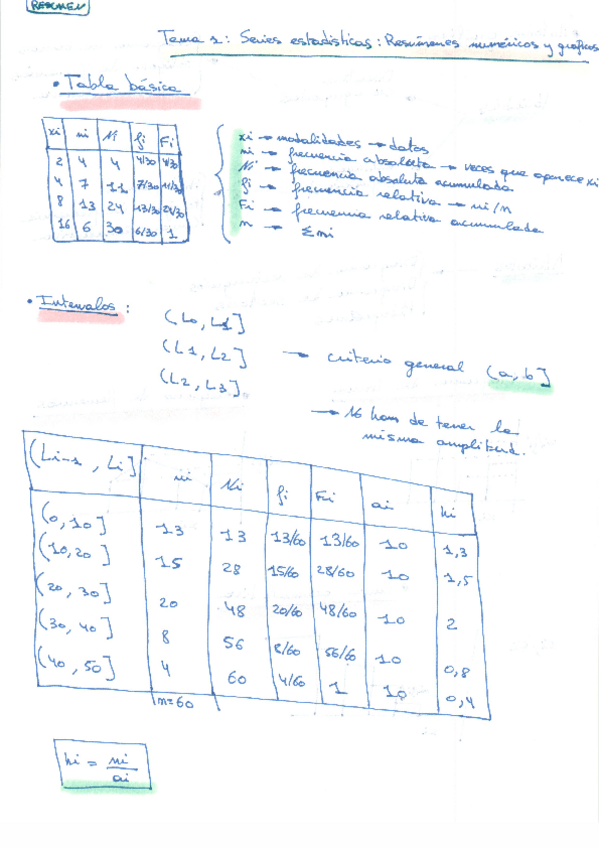 RESUMEN
Tema 1: Series estadísticas: Resúmenes numéricos y gráficos
• Tabla básica
xi ni Ni fi Fi
2 4 4 4/30 4/30
4 7 11 7/30 11/30
8 13 24 13/30 24/30
16 6 30 6/30 1
xi → modalidades → datos
ni → frecuencia absoluta → veces que aparece xi
Ni → frecuencia absoluta acumulada
fi → frecuencia relativa → ni/n
Fi → frecuencia relativa acumulada
n → Σni
• Intervalos:
(L0, L1]
(L1, L2] → criterio general (a, b]
(L2, L3]
→ No han de tener la
misma amplitud.
(Li-1, Li] ni Ni fi Fi ai hi
(0, 10] 13 13 13/60 13/60 10 1,3
(10, 20] 15 28 15/60 28/60 10 1,5
(20, 30] 20 48 20/60 48/60 10 2
(30, 40] 8 56 8/60 56/60 10 0,8
(40, 50] 4 60 4/60 1 10 0,4
n=60
hi = ni/ai